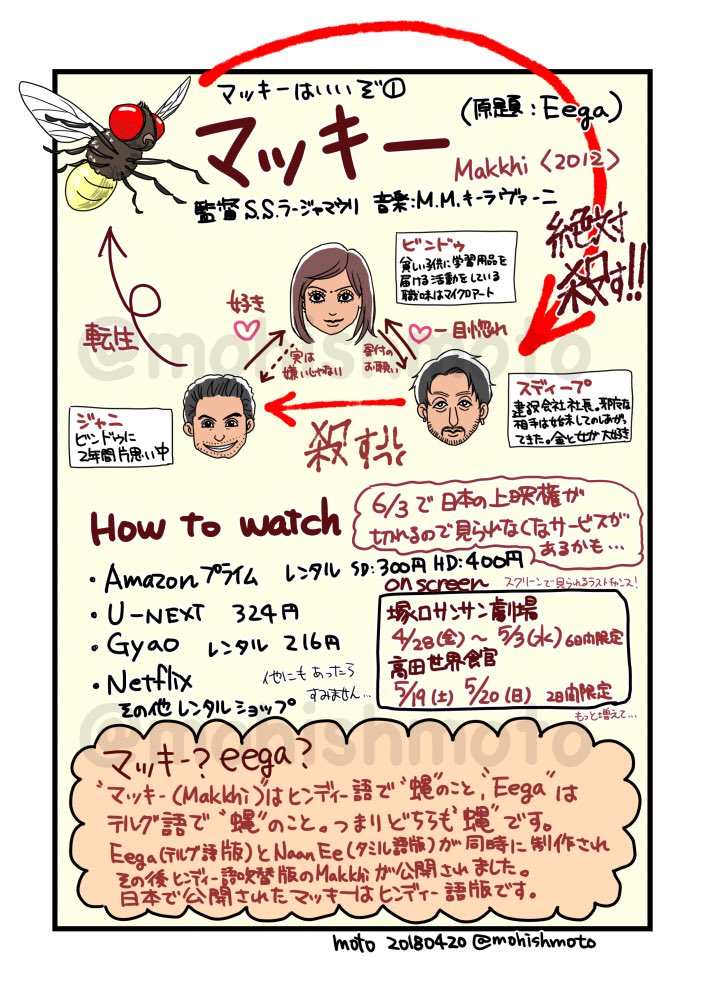 マッキーはいいぞ①
マッキー
(原題:Eega)
Makkhi〈2012〉
監督S.S.ラージャマウリ 音楽:M.M.キーラヴァーニ
絶対
殺す!!
ビンドゥ
貧しい子供に学習用品を
届ける活動をしている
職味はマイクロアート
好き
一目惚れ
転生
実は
嫌いじゃない
寄付の
お願い
スディープ
建設会社社長。邪魔な
相手は始末してのしあがっ
てきた。金と女が大好き
ジャニ
ビンドゥに
2年間片思い中
殺す
@mohishmoto
How to watch
6/3で日本の上映権が
切れるので見られなくなサービスが
あるかも…
・Amazonプライム レンタル SD:300円 HD:400円
・U-NEXT 324円
・Gyao レンタル 216円
・Netflix
その他レンタルショップ
他にもあったら
すみません…
on screen
スクリーンで見られるラストチャンス!
塚口サンサン劇場
4/28(金)〜5/3(水)6日間限定
高田世界館
5/19(土) 5/20(日) 2日間限定
もっと増えて…
@mohishmoto
マッキー?eega?
"マッキー(Makkhi)"はヒンディー語で"蝿"のこと,"Eega"は
テルグ語で"蝿"のこと。つまりどちらも"蝿"です。
Eega(テルグ語版)とNaan Ee(タミル語版)が同時に制作され
その後ヒンディー語吹替版のMakkhiが公開されました。
日本で公開されたマッキーはヒンディー語版です。
moto 20180420 @mohishmoto